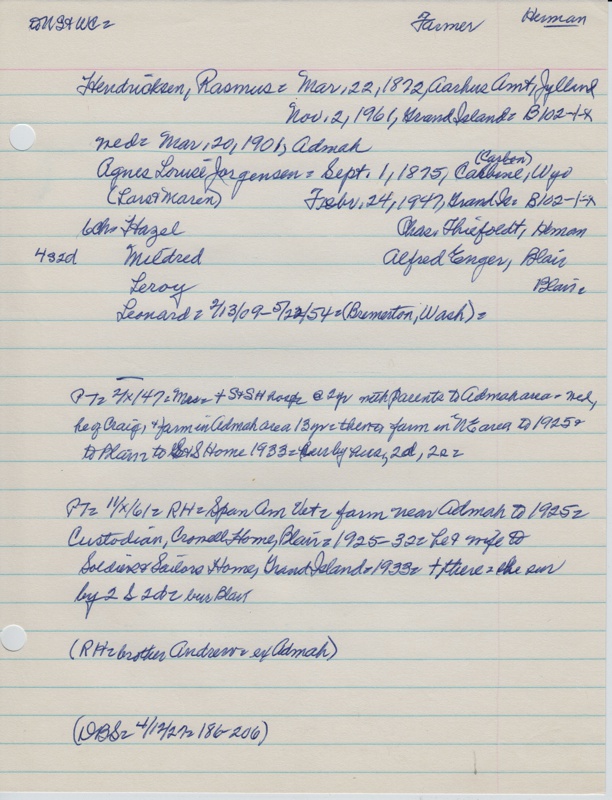 Farmer Herman
Hendricksen, Rasmus = Mar. 22, 1872, Aarhus Amt, Jylland
Nov. 2, 1961, Grand Island = B102-1-x
med = Mar. 20, 1901, Admah
Agnes Louise Jorgensen = Sept. 1, 1875, Carbine, Wyo
(Carbon)
(Lars & Maren) Febr. 24, 1947, Grand Is = B102-1-x
6ch = Hazel Chas. Thiefoldt, Herman
4s2d Mildred Alfred Enger, Blair
Leroy Blair =
Leonard = 2/13/09 - 5/22/54 = (Bremerton, Wash) =
PT = 2/x/47 = Mrs = + S&SH @ 2yr with parents to Admah area = med,
he of Craig, & farm in Admah area 13yr = then farm in NE area to 1925 &
to Blair to S&S Home 1933 = sur by 2d, 2s =
PT = 11/x/61 = RH = Span Am Vet = farm near Admah to 1925 =
Custodian, Crowell Home, Blair = 1925-32 = he & wife to
Soldiers & Sailors Home, Grand Island = 1933 = +, there = sur
by 2s 2d = bur Blair
(RH = brother Andrew = ex Admah)
(DBS = 4/12/27 = 186-206)